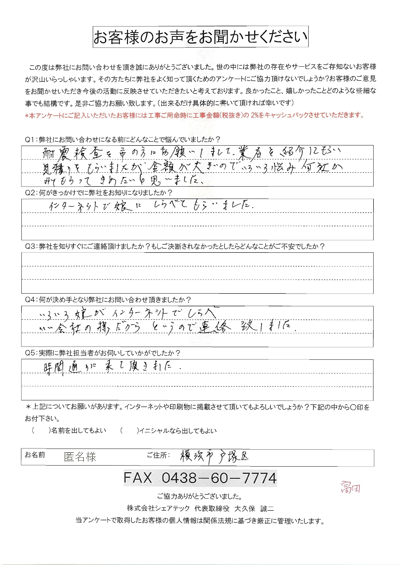 お客様のお声をお聞かせください
この度は弊社にお問い合わせを頂き誠にありがとうございました。世の中には弊社の存在やサービスをご存知ないお客様
が沢山いらっしゃいます。その方たちに弊社をよく知って頂くためのアンケートにご協力頂けないでしょうか?お客様のご意見
をお聞かせいただき今後の活動に反映させていただきたいと考えております。良かったこと、嬉しかったことどのような些細な
事でも結構です。是非ご協力お願い致します。(出来るだけ具体的に書いて頂ければ幸いです)
*本アンケートにご記入いただいたお客様には工事ご用命時に工事金額(税抜き)の2%をキャッシュバックさせていただきます。
Q1:弊社にお問い合わせになる前にどんなことで悩んでいましたか?
耐震検査を市の方にお願いしまして、業者を紹介してもらい
見積りをもらいましたが、金額が大きいのでいろいろ悩み何社か
みてもらってきめたいと思いました。
Q2:何がきっかけでに弊社をお知りになりましたか?
インターネットで娘にしらべてもらいました。
Q3:弊社を知りすぐにご連絡頂けましたか?もしご決断されなかったとしたらどんなことがご不安でしたか?
Q4:何が決め手となり弊社にお問い合わせ頂きましたか?
いろいろ娘がインターネットでしらべ
いい会社の様だからというので連絡致しました。
Q5:実際に弊社担当者がお伺いしていかがでしたか?
時間通りに来て頂きました。
*上記についてお願いがあります。インターネットや印刷物に掲載させて頂いてもよろしいでしょうか?下記の中から〇印を
お付下さい。
( )名前を出してもよい ( )イニシャルなら出してもよい
お名前 匿名様 ご住所: 横浜市戸塚区
FAX 0438-60-7774
ご協力ありがとうございました。
株式会社シェアテック 代表取締役 大久保 誠二
当アンケートで取得したお客様の個人情報は関係法規に基づき厳正に管理いたします。